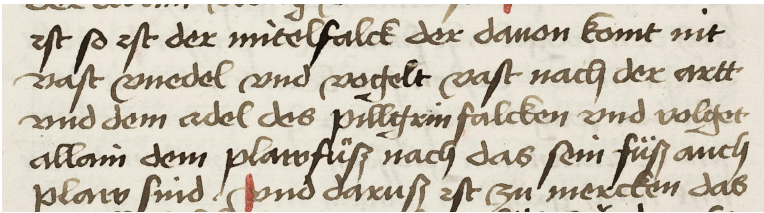 ist so ist der mitelfalck der dauon komt nit
vast vnedel vnd vogelt vast nach der artt
vnd dem adel des pillgrin falcken vnd volget
allain dem plawfüsz nach das sein füsz auch
plaw sind . Vnd darusz ist zu mercken das